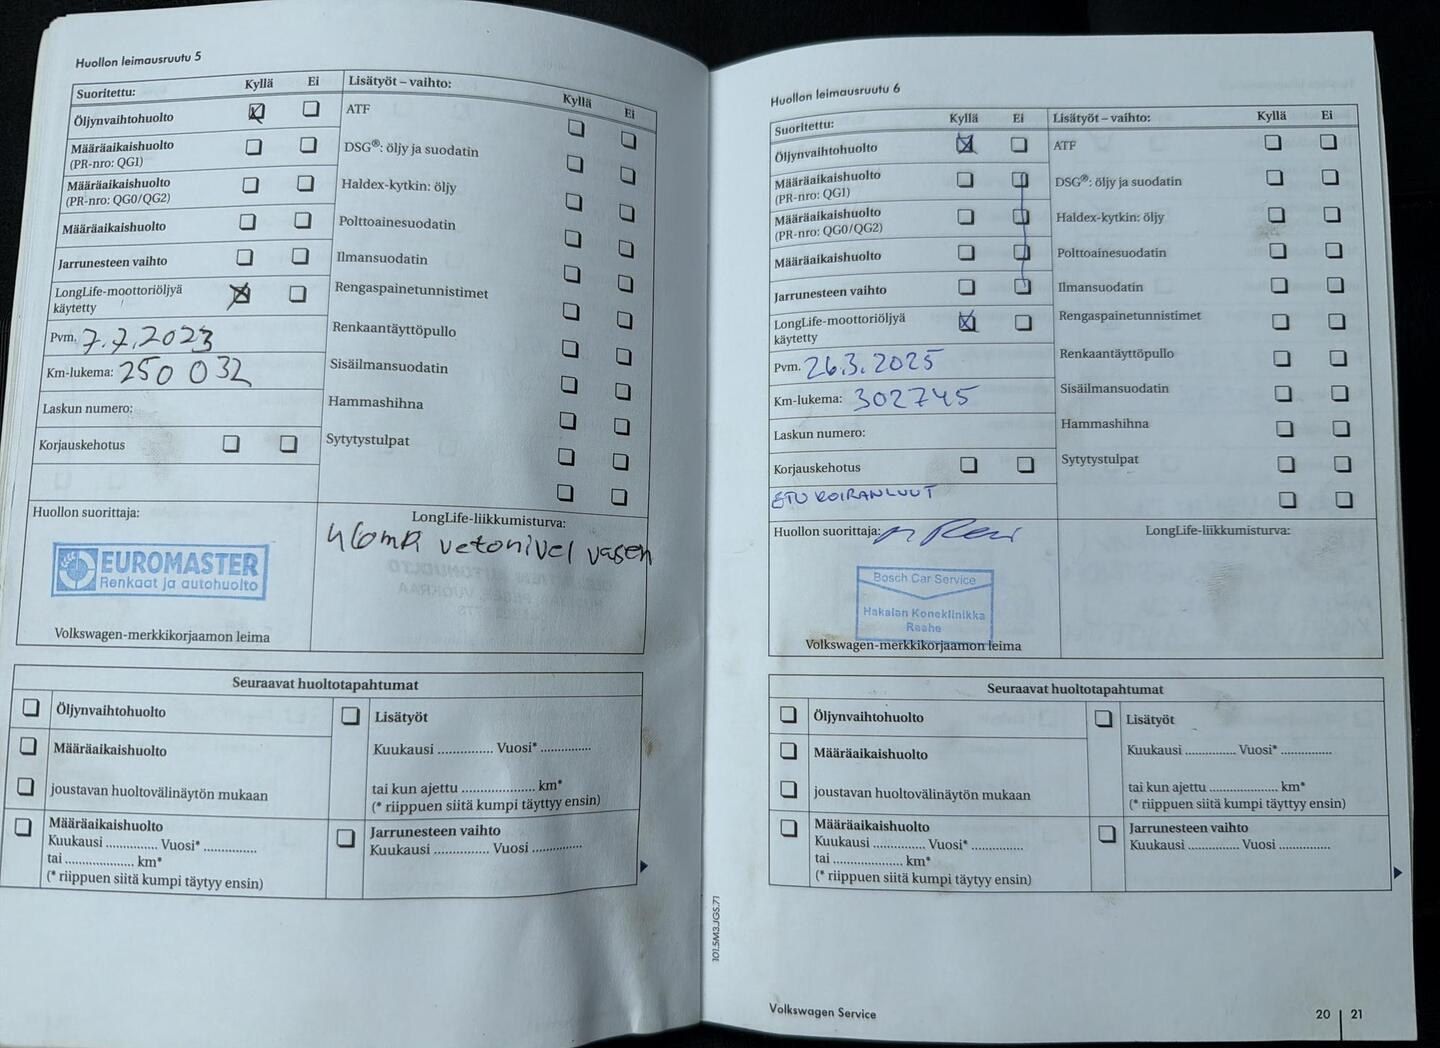 Huollon leimausruutu 5
Suoritettu: Kyllä Ei
Öljynvaihtohuolto
Määräaikaishuolto
(PR-nro: QG1)
Määräaikaishuolto
(PR-nro: QG0/QG2)
Määräaikaishuolto
Jarrunesteen vaihto
LongLife-moottoriöljyä
käytetty
Pvm. 7.7.2023
Km-lukema: 250 032
Laskun numero:
Korjauskehotus
Lisätyöt – vaihto: Kyllä Ei
ATF
DSG®: öljy ja suodatin
Haldex-kytkin: öljy
Polttoainesuodatin
Ilmansuodatin
Rengaspainetunnistimet
Renkaantäyttöpullo
Sisäilmansuodatin
Hammashihna
Sytytystulpat
Huollon suorittaja:
EUROMASTER
Renkaat ja autohuolto
Volkswagen-merkkikorjaamon leima
LongLife-liikkumisturva:
vetonivel vasen
Seuraavat huoltotapahtumat
Öljynvaihtohuolto
Määräaikaishuolto
joustavan huoltovälinäytön mukaan
Määräaikaishuolto
Kuukausi .............. Vuosi* ..............
tai .................... km*
(* riippuen siitä kumpi täytyy ensin)
Lisätyöt
Kuukausi .............. Vuosi* ..............
tai kun ajettu .................... km*
(* riippuen siitä kumpi täyttyy ensin)
Jarrunesteen vaihto
Kuukausi .............. Vuosi ..............
Huollon leimausruutu 6
Suoritettu: Kyllä Ei
Öljynvaihtohuolto
Määräaikaishuolto
(PR-nro: QG1)
Määräaikaishuolto
(PR-nro: QG0/QG2)
Määräaikaishuolto
Jarrunesteen vaihto
LongLife-moottoriöljyä
käytetty
Pvm. 26.3.2025
Km-lukema: 302745
Laskun numero:
Korjauskehotus
ETU KOIRANLUUT
Lisätyöt – vaihto: Kyllä Ei
ATF
DSG®: öljy ja suodatin
Haldex-kytkin: öljy
Polttoainesuodatin
Ilmansuodatin
Rengaspainetunnistimet
Renkaantäyttöpullo
Sisäilmansuodatin
Hammashihna
Sytytystulpat
Huollon suorittaja:
Bosch Car Service
Hakalan Koneklinikka
Raahe
Volkswagen-merkkikorjaamon leima
LongLife-liikkumisturva:
Seuraavat huoltotapahtumat
Öljynvaihtohuolto
Määräaikaishuolto
joustavan huoltovälinäytön mukaan
Määräaikaishuolto
Kuukausi .............. Vuosi* ..............
tai .................... km*
(* riippuen siitä kumpi täytyy ensin)
Lisätyöt
Kuukausi .............. Vuosi* ..............
tai kun ajettu .................... km*
(* riippuen siitä kumpi täyttyy ensin)
Jarrunesteen vaihto
Kuukausi .............. Vuosi ..............
101.5M3.JGS.71
Volkswagen Service
20 | 21